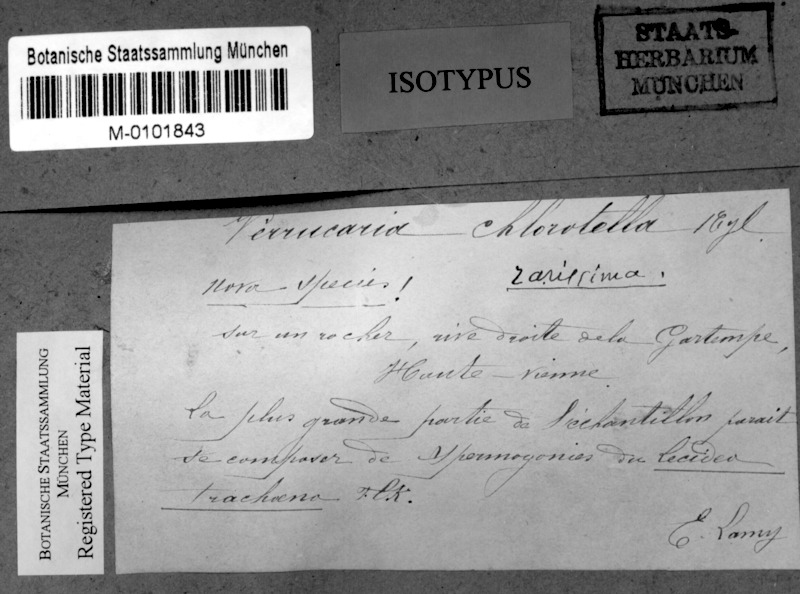 Botanische Staatssammlung München
M-0101843
ISOTYPUS
STAATS-
HERBARIUM
MÜNCHEN
Verrucaria chlorotella Nyl.
nova species! rarissima.
sur un rocher, rive droite de la Gartempe,
Haute-vienne
la plus grande partie de l'échantillon parait
se composer de spermogonies du lecidea
trachœna Flk.
E. Lamy
BOTANISCHE STAATSSAMMLUNG
MÜNCHEN
Registered Type Material